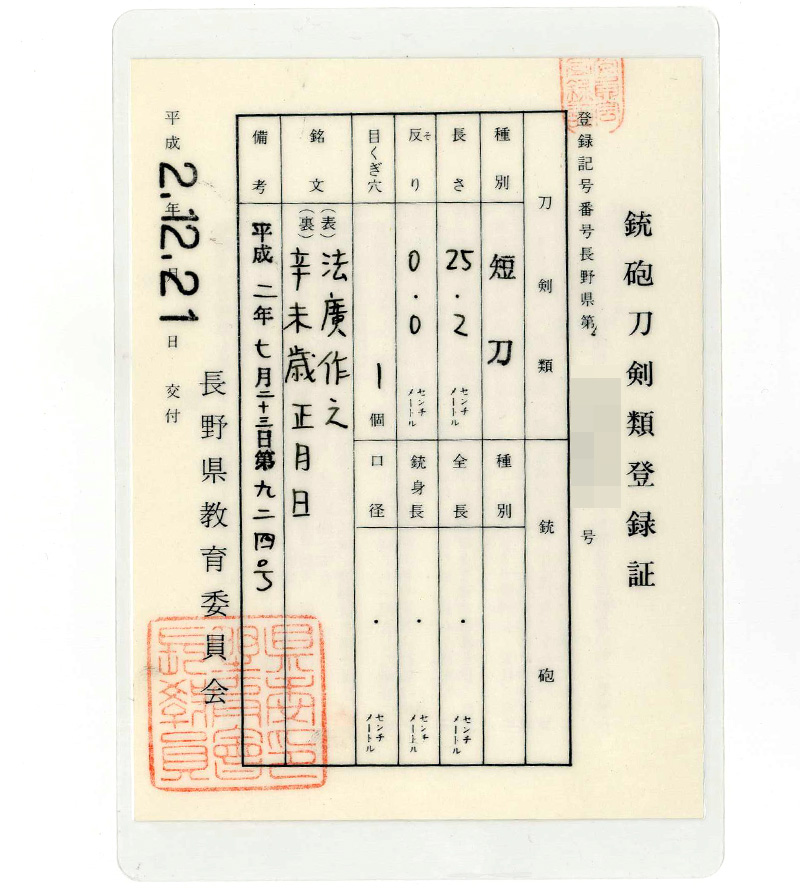 銃砲刀剣類登録証
登録記号番号長野県第 号
刀剣類
銃砲
種別
短刀
種別
長さ
25.2
センチメートル
全長
.
センチメートル
反り
そ
0.0
センチメートル
銃身長
.
センチメートル
目くぎ穴
1個
口径
.
センチメートル
銘文
(表)法廣作之
(裏)辛未歳正月日
備考
平成二年七月二十三日第九二四〇号
平成 年 月 日 交付
2.12.21
長野県教育委員会